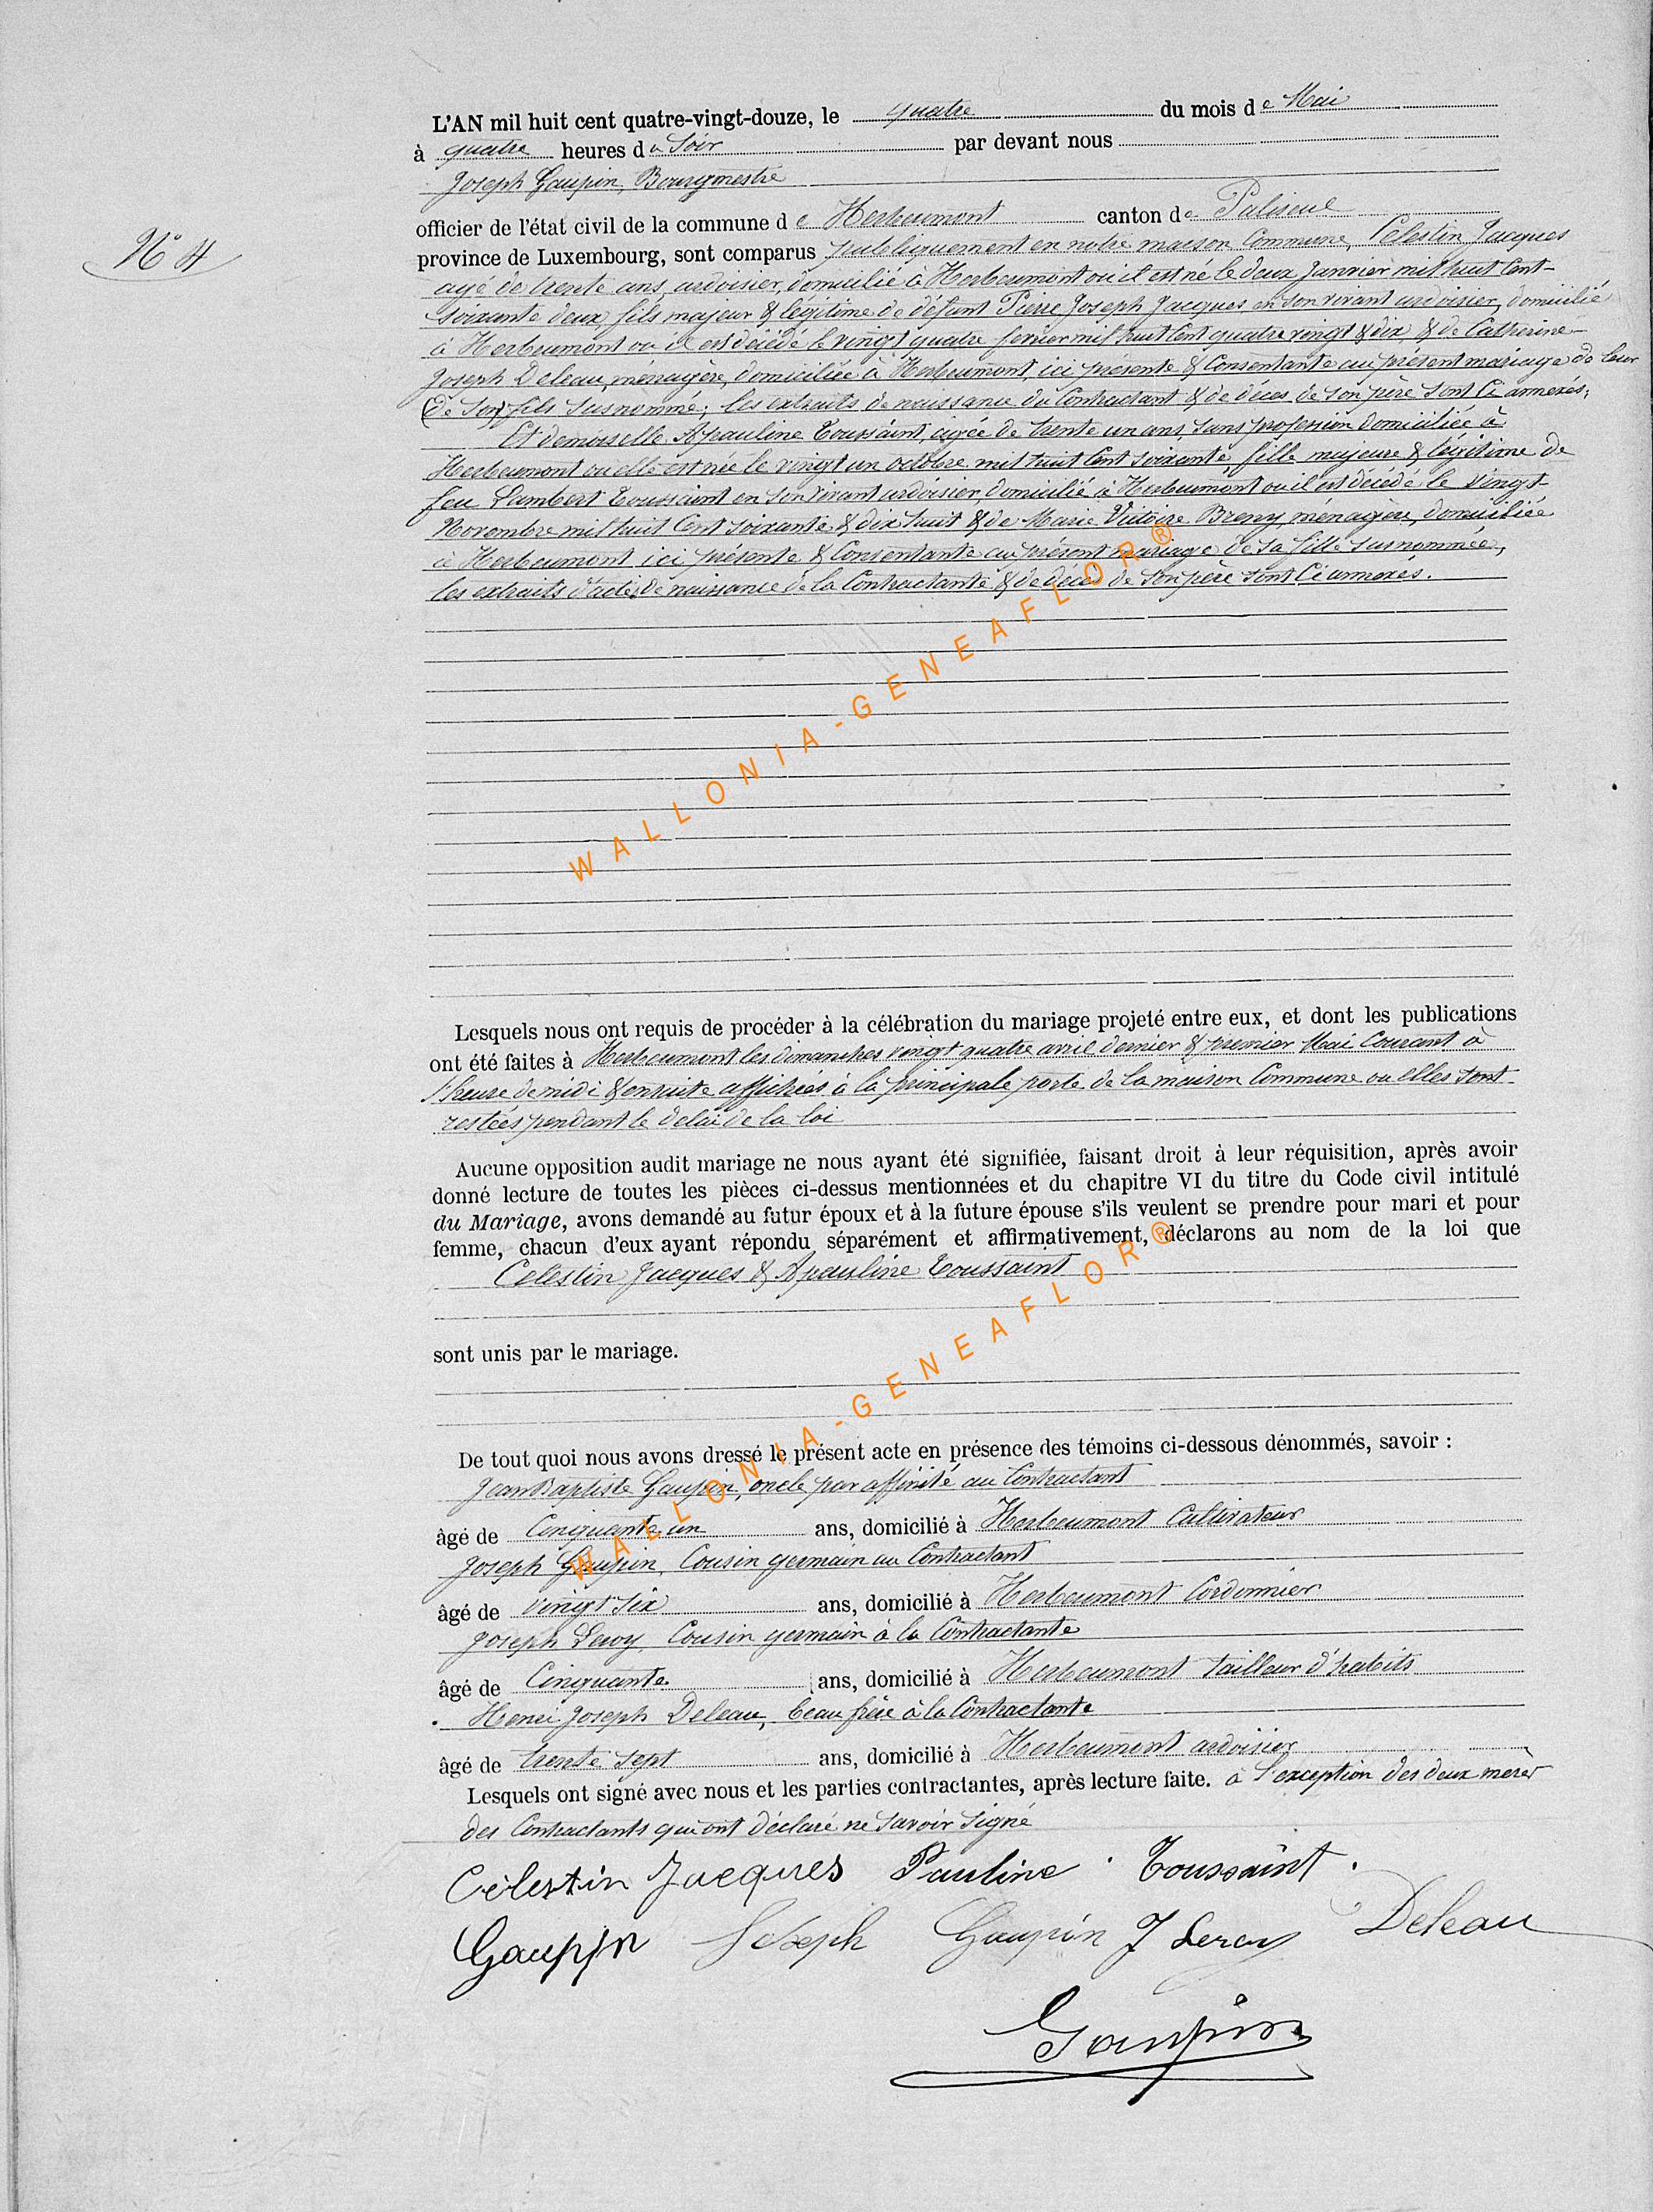 N° 4
L'AN mil huit cent quatre-vingt-douze, le quatre du mois de Mai
à quatre heures du Soir par devant nous
Joseph Gaupin, Bourgmestre
officier de l'état civil de la commune de Herbeumont canton de Paliseul
province de Luxembourg, sont comparus publiquement en notre maison Commune, Celestin Jacques
agé de trente ans, ardoisier, domicilié à Herbeumont ou il est né le deux Janvier mil huit Cent
soixante deux, fils majeur & légitime de défunt Pierre Joseph Jacques en son vivant ardoisier, domicilié
à Herbeumont ou il est décédé le vingt quatre fevrier mil huit Cent quatre vingt & dix, & de Catherine
Joseph Deleau, ménagère, domiciliée à Herbeumont, ici présente & Consentante au présent mariage de leur
(de son) fils susnommé; les extraits de naissance du Contractant & de décès de son père sont Ci annexés;
Et demoiselle Apauline Toussaint, agée de trente un ans, sans profession domiciliée à
Herbeumont ou elle est née le vingt un octobre mil huit Cent soixante, fille majeure & légitime de
feu Lambert Toussaint en son vivant ardoisier, domicilié à Herbeumont ou il est décédé le vingt
Novembre mil huit Cent soixante & dix huit & de Marie Victoire Breny, ménagère, domiciliée
à Herbeumont, ici présente & Consentante au présent mariage de sa fille susnommée,
les extraits d'actes de naissance de la Contractante & de décès de son père sont Ci annexés.
WALLONIA-GENEAFLOR®
Lesquels nous ont requis de procéder à la célébration du mariage projeté entre eux, et dont les publications
ont été faites à Herbeumont les dimanches vingt quatre avril dernier & premier Mai Courant à
l'heure de midi & ensuite affichées à la principale porte de la maison Commune ou elles sont
restées pendant le delai de la loi
Aucune opposition audit mariage ne nous ayant été signifiée, faisant droit à leur réquisition, après avoir
donné lecture de toutes les pièces ci-dessus mentionnées et du chapitre VI du titre du Code civil intitulé
du Mariage, avons demandé au futur époux et à la future épouse s'ils veulent se prendre pour mari et pour
femme, chacun d'eux ayant répondu séparément et affirmativement, déclarons au nom de la loi que
Celestin Jacques & Apauline Toussaint
sont unis par le mariage.
WALLONIA-GENEAFLOR®
De tout quoi nous avons dressé le présent acte en présence des témoins ci-dessous dénommés, savoir :
Jean Baptiste Gaupin, oncle par affinité au Contractant
âgé de Cinquante un ans, domicilié à Herbeumont Cultivateur
Joseph Gaupin, Cousin germain au Contractant
âgé de vingt six ans, domicilié à Herbeumont Cordonnier
Joseph Leroy, Cousin germain à la Contractante
âgé de Cinquante ans, domicilié à Herbeumont tailleur d'habits
Henri Joseph Deleau, beau frère à la Contractante
âgé de trente sept ans, domicilié à Herbeumont ardoisier
Lesquels ont signé avec nous et les parties contractantes, après lecture faite. à l'exception des deux mères
des Contractants qui ont déclaré ne savoir signé
Célestin Jacques Pauline Toussaint.
Gaupin Joseph Gaupin J Leroy Deleau
Gaupin